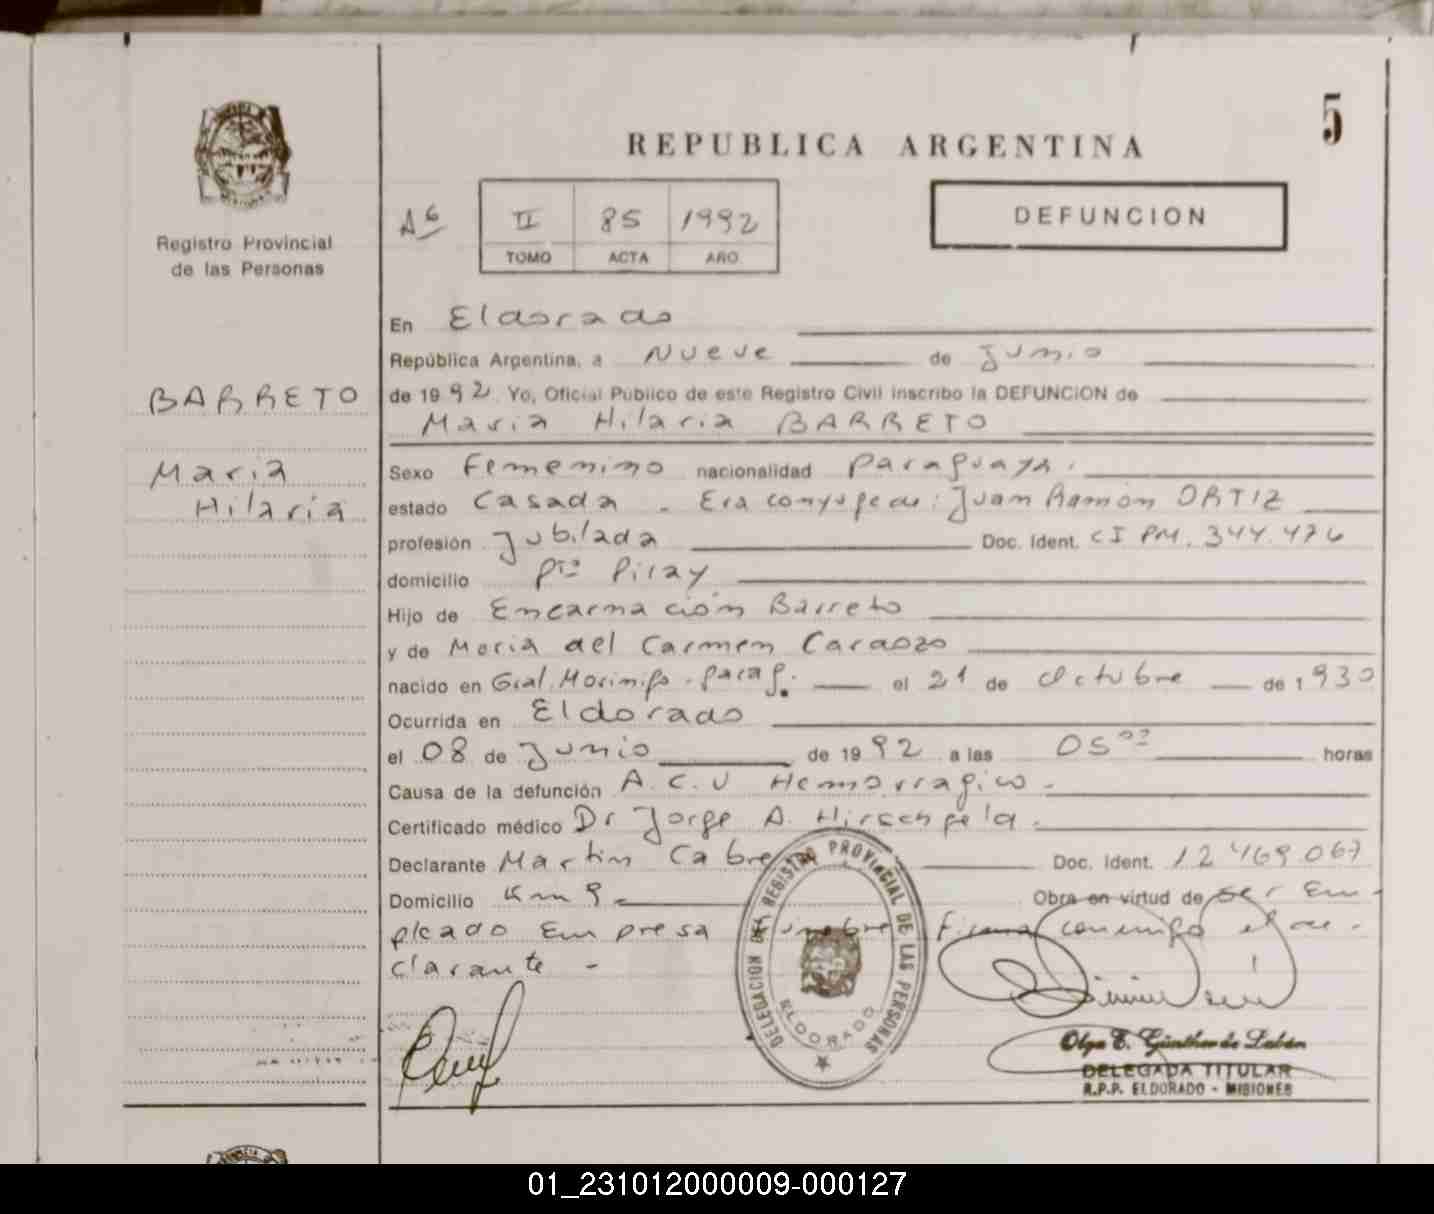 5
REPUBLICA ARGENTINA
Registro Provincial
de las Personas
A6
II 85 1992
TOMO ACTA AÑO
DEFUNCION
BARRETO
Maria
Hilaria
En Eldorado
República Argentina, a Nueve de Junio
de 1992. Yo, Oficial Público de este Registro Civil inscribo la DEFUNCION de
Maria Hilaria BARRETO
Sexo Femenino nacionalidad Paraguaya.
estado Casada - Era conyuge de: Juan Ramón ORTIZ
profesión Jubilada Doc. Ident. CI PM. 344.476
domicilio Pto Piray
Hijo de Encarnación Barreto
y de Maria del Carmen Cardozo
nacido en Gral. Morinigo - Parag. el 21 de Octubre de 1930
Ocurrida en Eldorado
el 08 de Junio de 1992 a las 05 horas
Causa de la defunción A.C.V Hemorragico -
Certificado médico Dr Jorge A. Hirschfeld.
Declarante Martin Cabre Doc. Ident. 12469.067
Domicilio Km 9 Obra en virtud de ser Em-
pleado Empresa Funebre Firma conmigo el de-
clarante -
DELEGACION DEL REGISTRO PROVINCIAL DE LAS PERSONAS
ELDORADO
Olga E. Günther de Labán
DELEGADA TITULAR
R.P.P. ELDORADO - MISIONES
01_231012000009-000127